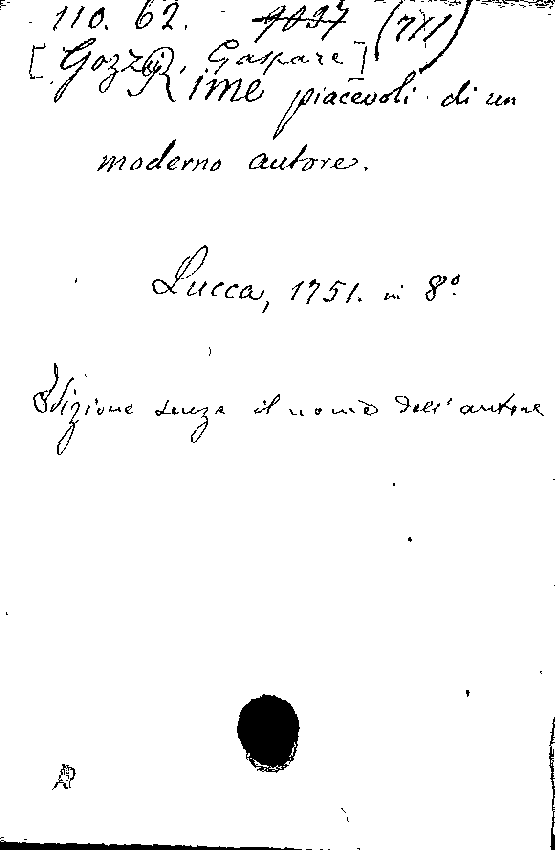 110. 62. 9037 (711)
[Gozzi, Gaspare]
Rime piacevoli di un
moderno autore.
Lucca, 1751. in 8º
Edizione senza il nome dell'autore